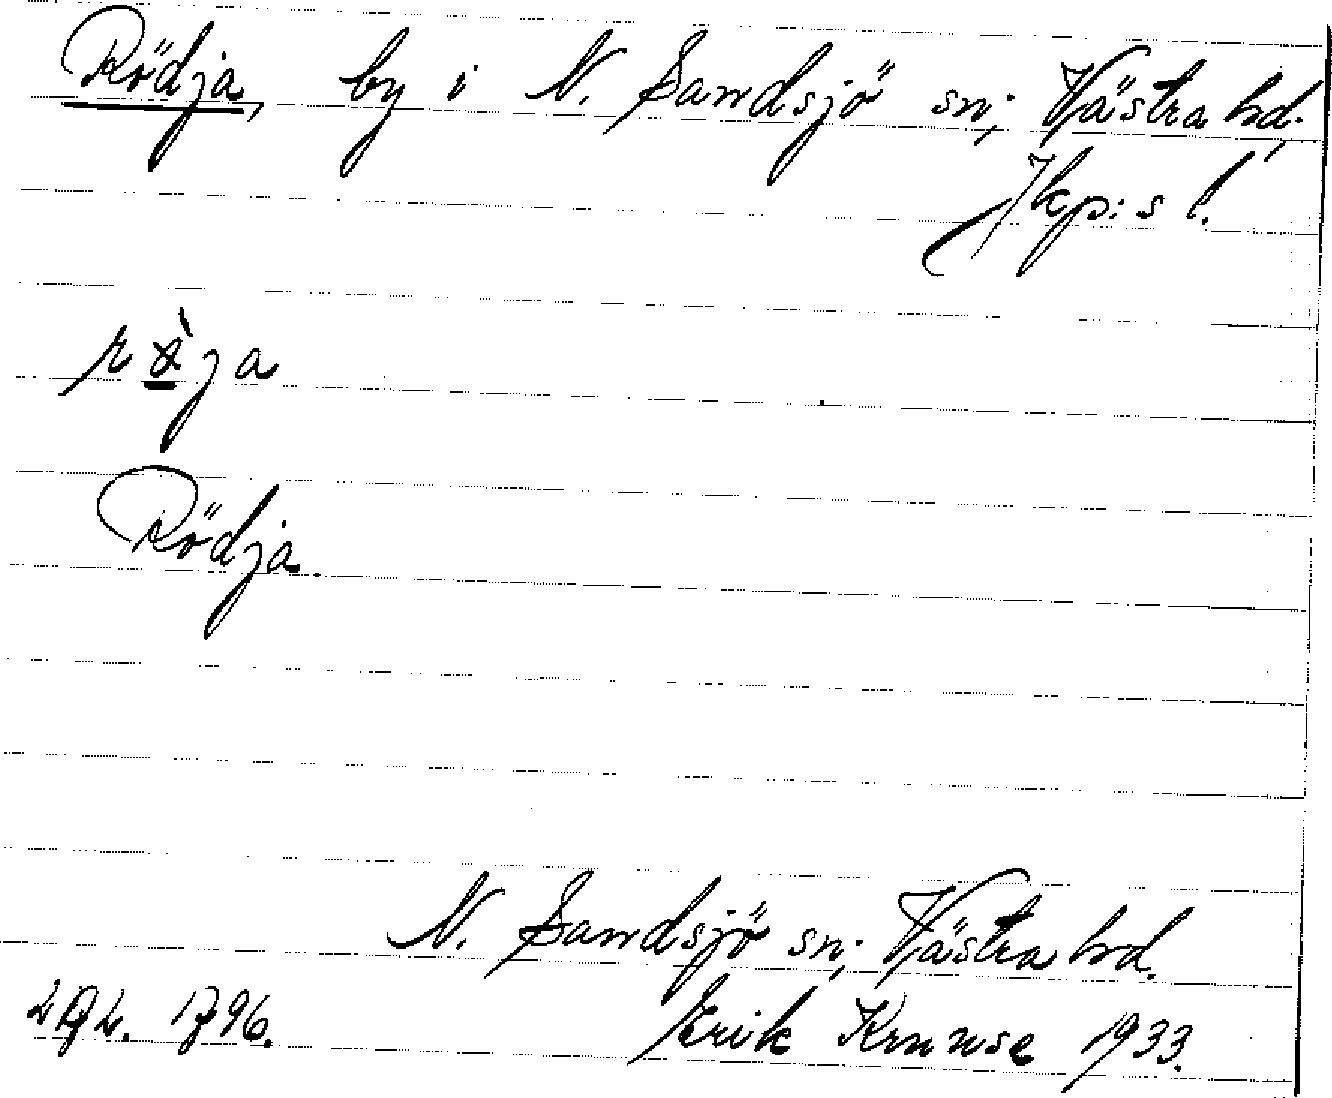 Rödja, by i N. Sandsjö sn; Västra hd.
Jkp:s l.
Rödja.
N. Sandsjö sn; Västra hd.
1796. Erik Kruuse 1933.